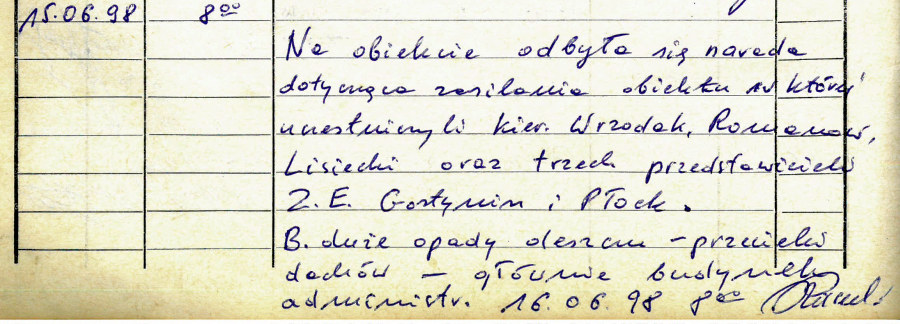 15.06.98 8⁰⁰
Na obiekcie odbyła się narada
dotycząca zasilania obiektu w której
uczestniczyli kier. Wrzodak, Romanow,
Lisiecki oraz trzech przedstawicieli
Z.E. Gostynin i Płock.
B. duże opady deszczu – przecieki
dachów – głównie budynek
administr. 16.06.98 8⁰⁰